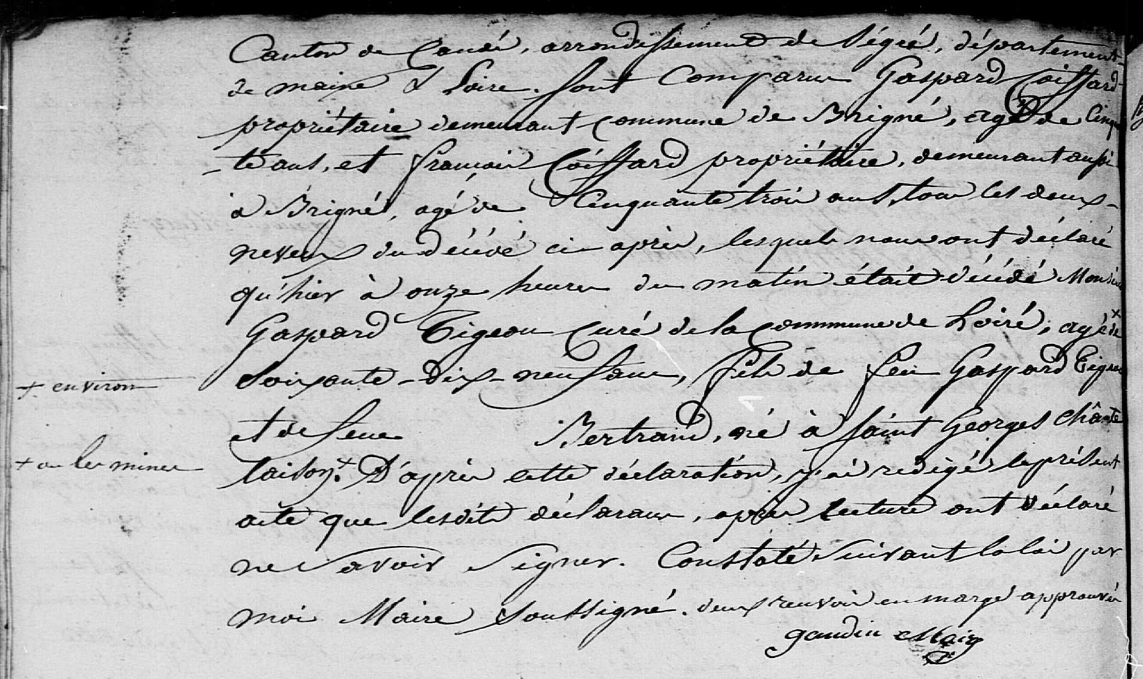 Canton de Candé, arrondissement de Ségré, département
de maine & Loire. sont comparu Gaspard Coiffard
propriétaire demeurant commune de Brigné, agé de Cinq
te ans, et françois Coiffard propriétaire, demeurant aussi
à Brigné, agé de Cinquante trois ans, tous les deux
neveux du décédé ci après, lesquels nous ont déclaré
qu'hier à onze heures du matin était décédé Monsieur
Gaspard Tigeou Curé de la Commune de Loiré, agé + de
+ environ
Soixante-dix-neuf ans, fils de feu Gaspard Tigeou
et de feue Bertrand, né à Saint Georges Châte
+ ou les mines
laison + D'après cette déclaration, j'ai rédigé le présent
acte que lesdits déclarans, après lecture ont déclaré
ne savoir signer. Constaté suivant la loi par
moi Maire soussigné. deux renvois en marge approuvés
gaudin Maire